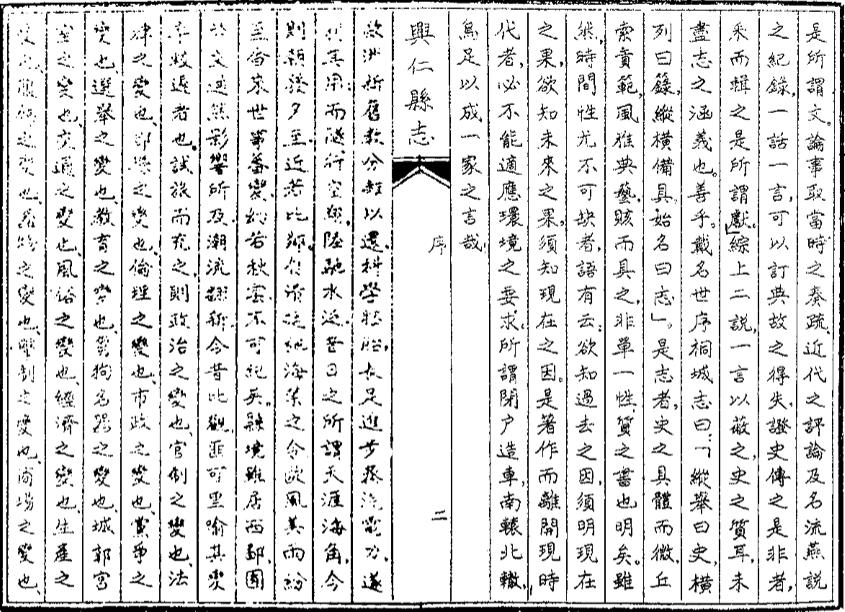 是所謂文。論事取當時之奏疏、近代之評論及名流燕說
之紀錄，一話一言，可以訂典故之得失，證史傳之是非者，
采而輯之，是所謂獻。綜上二說，一言以蔽之，史之質耳，未
盡志之涵義也。善乎。戴名世序桐城志曰：「縱舉曰史，橫
列曰錄，縱橫備具，始名曰志」。是志者，史之具體而微，丘
索貴範，風雅典藝，賅而具之，非單一性質之書也明矣。雖
然，時間性尤不可缺者，語有云：欲知過去之因，須明現在
之果，欲知未來之果，須知現在之因。是著作而離開現時
代者，必不能適應環境之要求，所謂閉户造車，南轅北轍，
烏足以成一家之言哉
興仁縣志
序
二
歐洲新舊教分 以還，科學 長足進步，蒸汽電力，遂
其用；而隧行空 ，陸馳水泛，昔日之所謂天涯海角，今
則朝發夕至，近若比鄰， 海禁之令 ，歐風美雨紛
至沓來，世事蕃變， 若秋雲，不可紀矣。縣境雖居西鄙，固
於交通，然影響所及，潮流 ，今昔比觀，匪可里喻，其變
者也。試旅而充之，則政治之變也，官制之變也，法
律之變也， 之變也，倫理之變也，市政之變也，黨爭之
變也，選舉之變也，教育之變也， 名器之變也，城郭宮
室之變也，交通之變也，風俗之變也，經濟之變也，生產之
變也， 之變也， 物之變也， 制之變也，商場之變也，